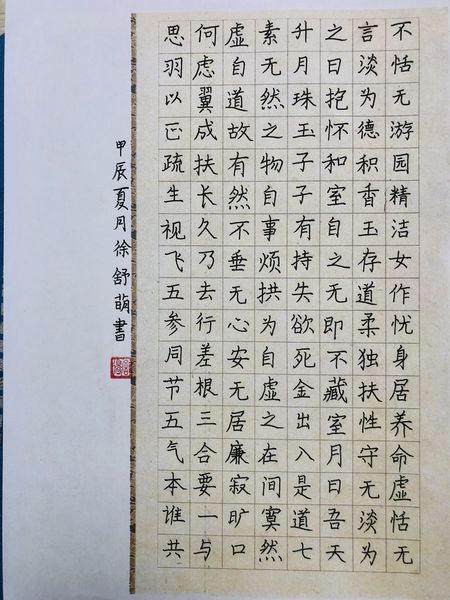 不恬无游园精洁女作忧身居养命虚恬无
言淡为德积香玉存道柔独扶性守无淡为
之曰抱怀和室自之无即不藏室月曰吾天
升月珠玉子子有持失欲死金出入是道七
素无然之物自事烦拱为自虚之在间寞然
虚自道故有然不垂无心安无居廉寂旷口
何虑翼成扶长久乃去行差根三合要一与
思羽以正疏生视飞五参同节五气本谁共
甲辰夏月徐舒萌書